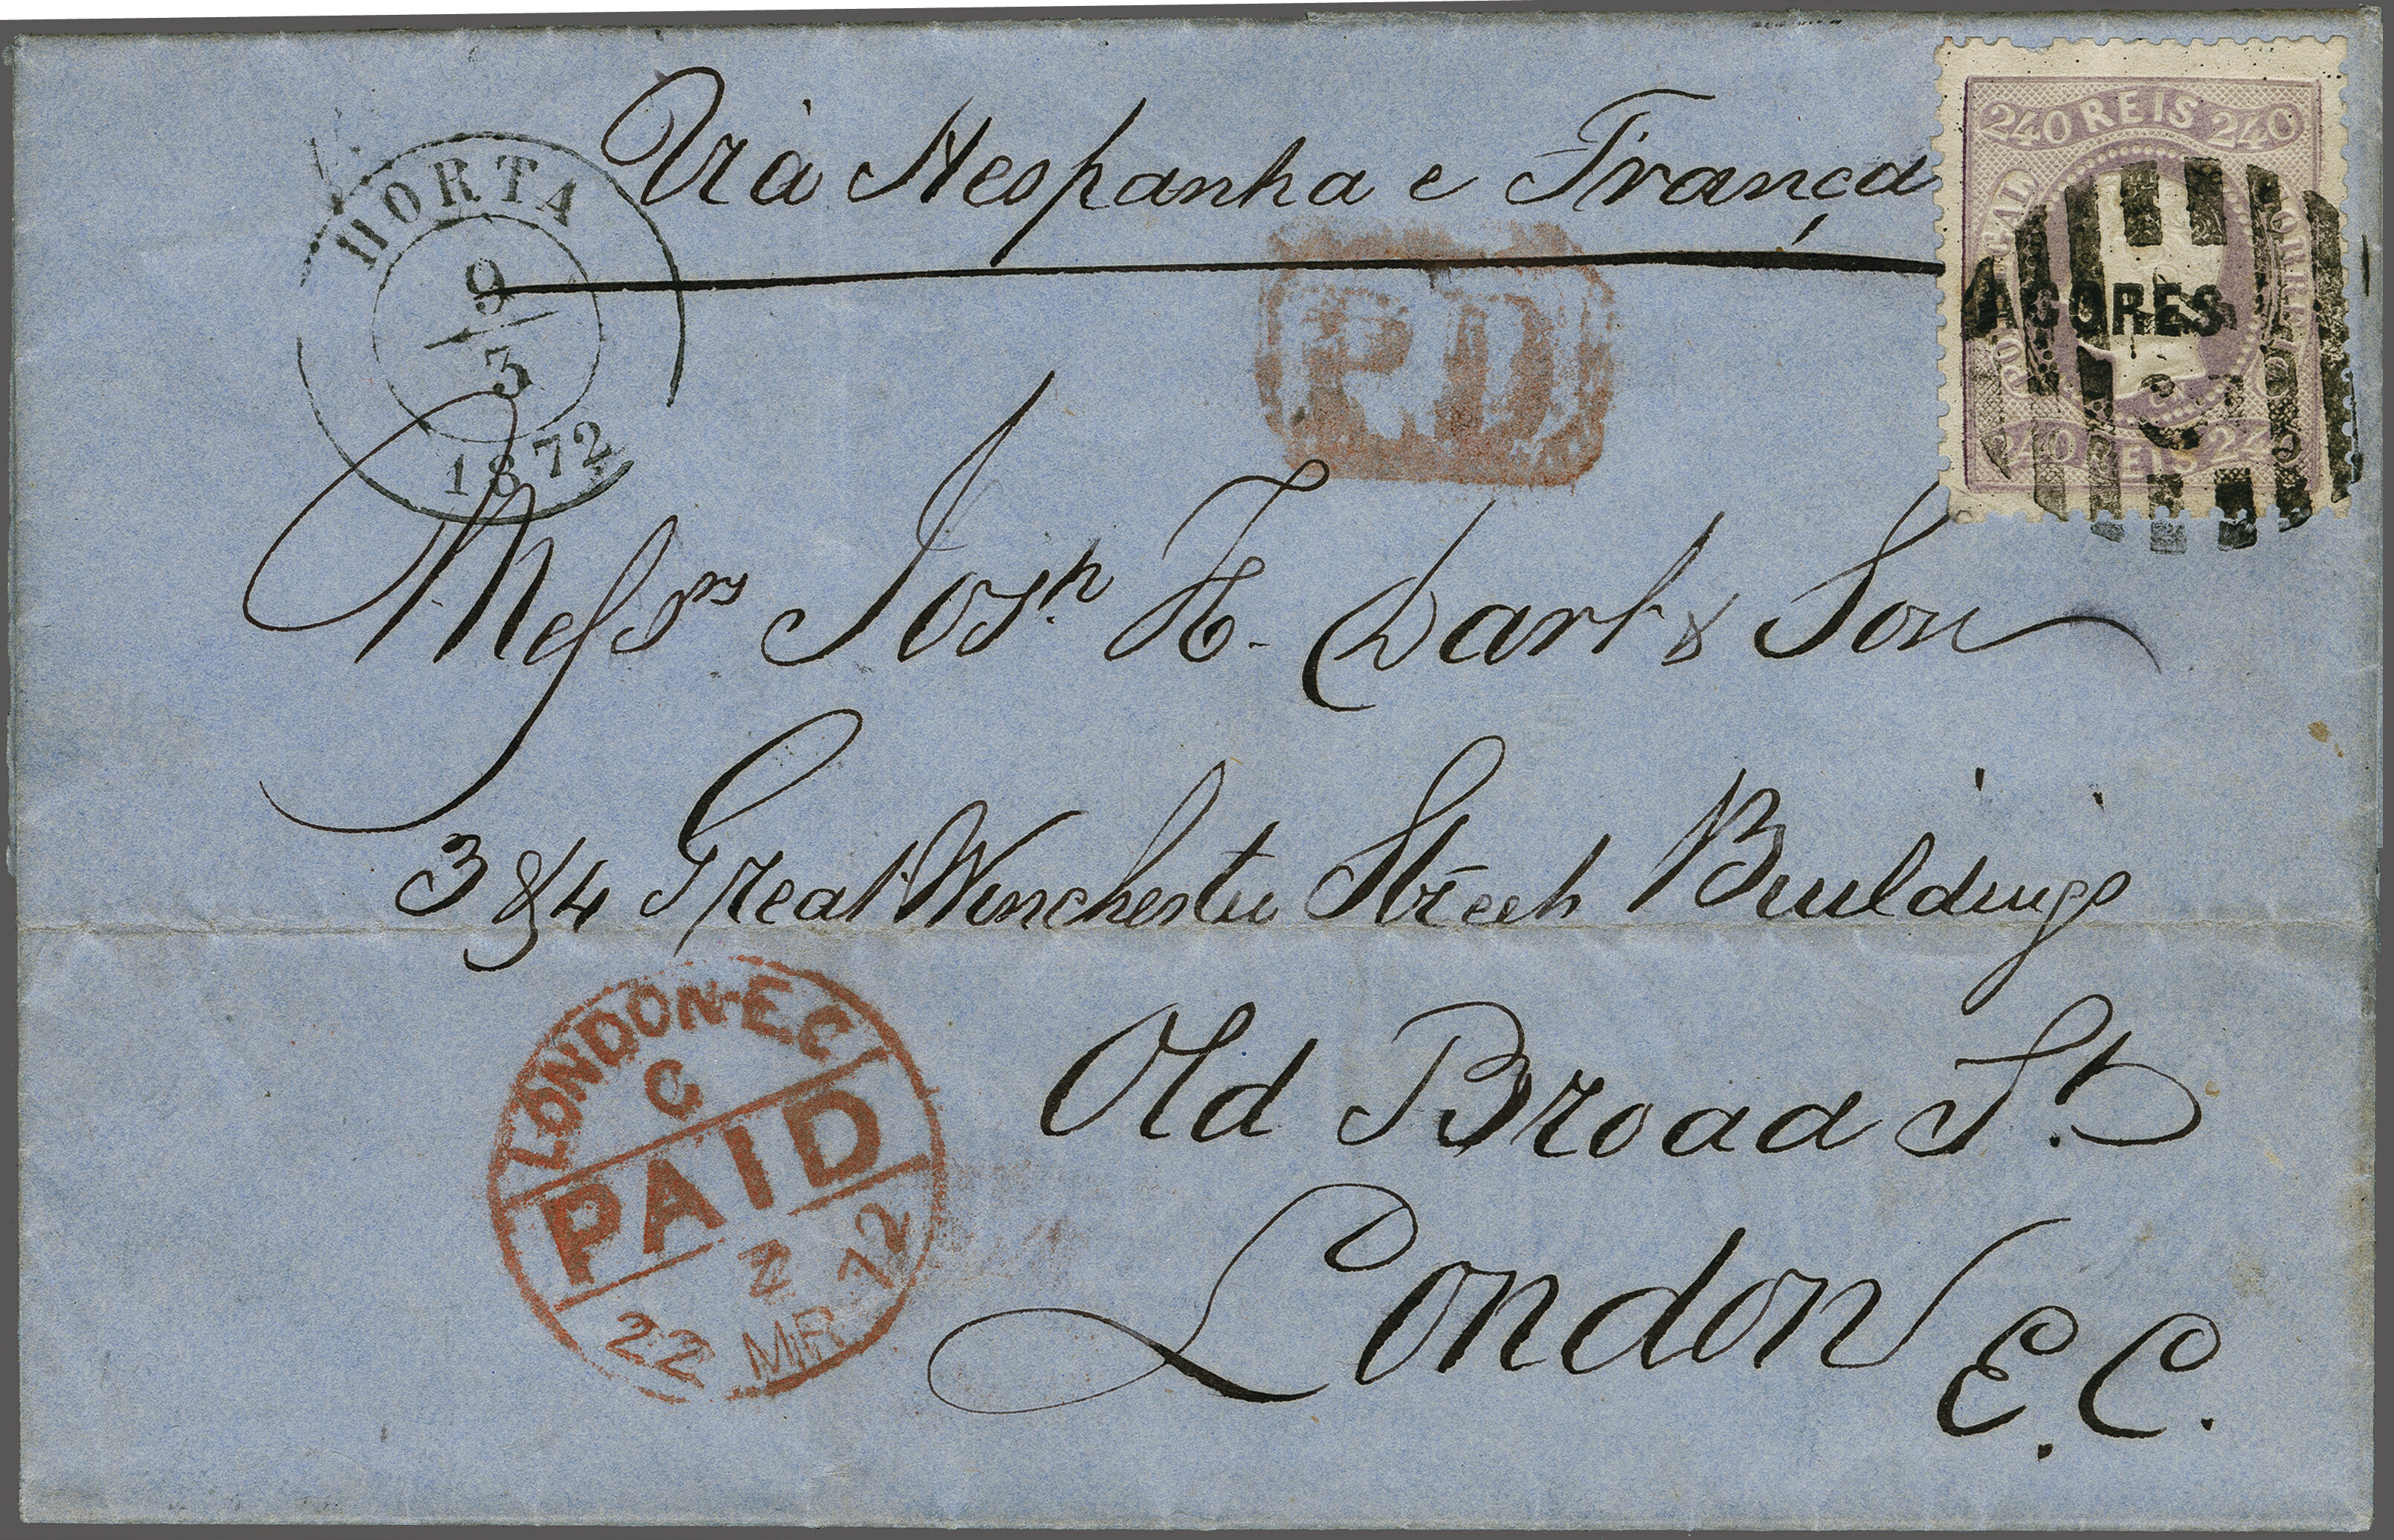 Via Hespanha e França
HORTA
9
3
1872
P.D
240 REIS 240
PORTUGAL
CORREIO
AÇORES
240 REIS 240
Messrs Josh H. Dart & Son
3 & 4 Great Winchester Street Buildings
Old Broad St.
London
E.C.
LONDON-E.C
C
PAID
Z
22 MR 72